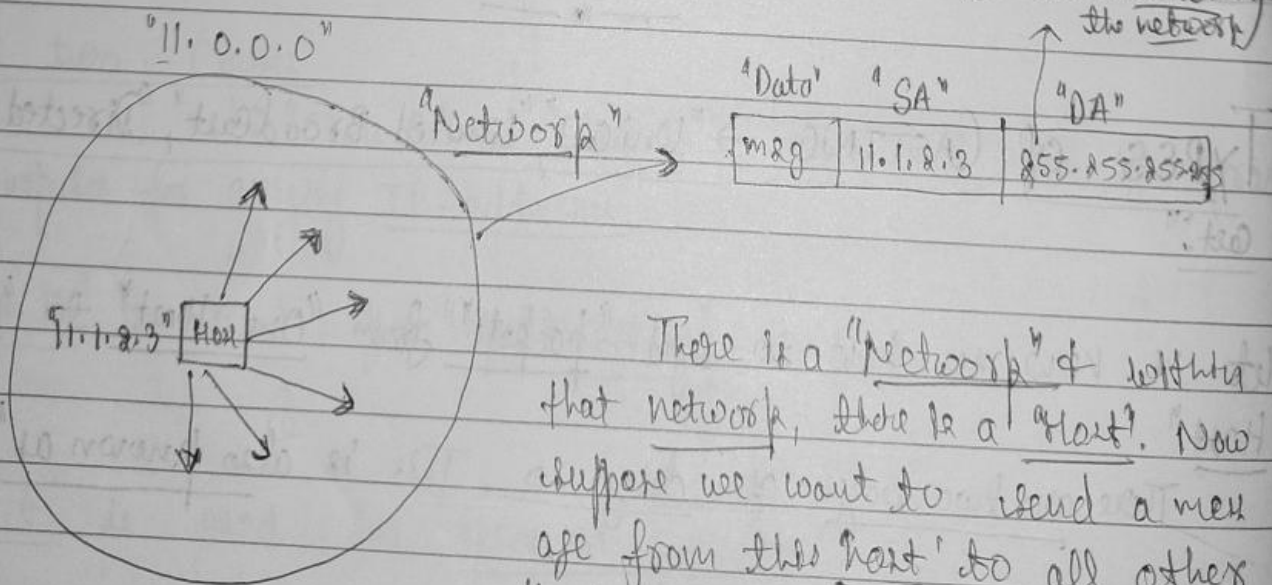 the network
"11.0.0.0"
"Data" "SA" "DA"
"Network"
msg 11.1.2.3 255.255.255.255
"11.1.2.3" Host
There is a "Network" & within
that network, there is a "Host". Now
suppose we want to send a mess
age from this host' to all other